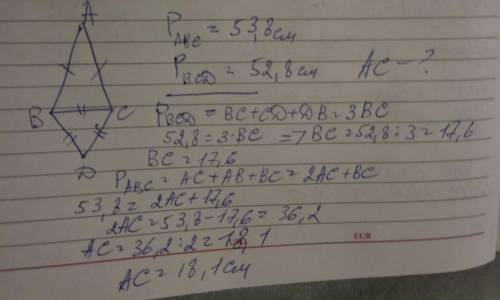 A
P_ABC = 53,8 см
P_BCD = 52,8 см AC - ?
B C
P_BCD = BC + CD + DB = 3BC
52,8 = 3·BC => BC = 52,8 : 3 = 17,6
D
BC = 17,6
P_ABC = AC + AB + BC = 2AC + BC
53,8 = 2AC + 17,6
2AC = 53,8 - 17,6 = 36,2
AC = 36,2 : 2 = 18,1
EUR
AC = 18,1 см